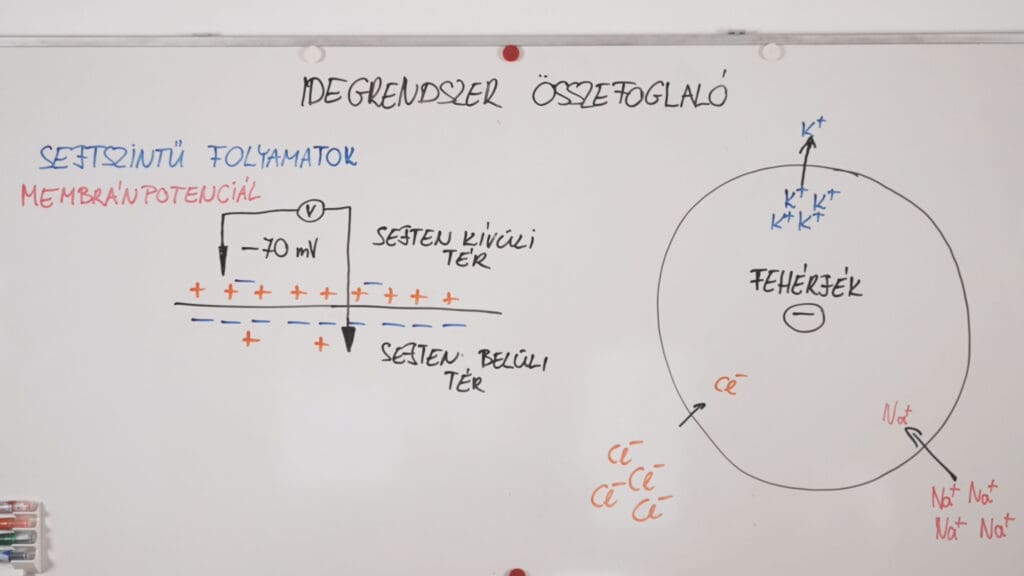 IDEGRENDSZER ÖSSZEFOGLALÓ
SEJTSZINTŰ FOLYAMATOK
MEMBRÁNPOTENCIÁL
V
-70 mV
SEJTEN KÍVÜLI
TÉR
+ + + + + + + + +
− −
− − − − − − − − −
+ +
SEJTEN BELÜLI
TÉR
K⁺
K⁺ K⁺
K⁺ K⁺
FEHÉRJÉK
−
Cl⁻
Cl⁻
Cl⁻
Cl⁻ Cl⁻
Na⁺
Na⁺ Na⁺
Na⁺ Na⁺